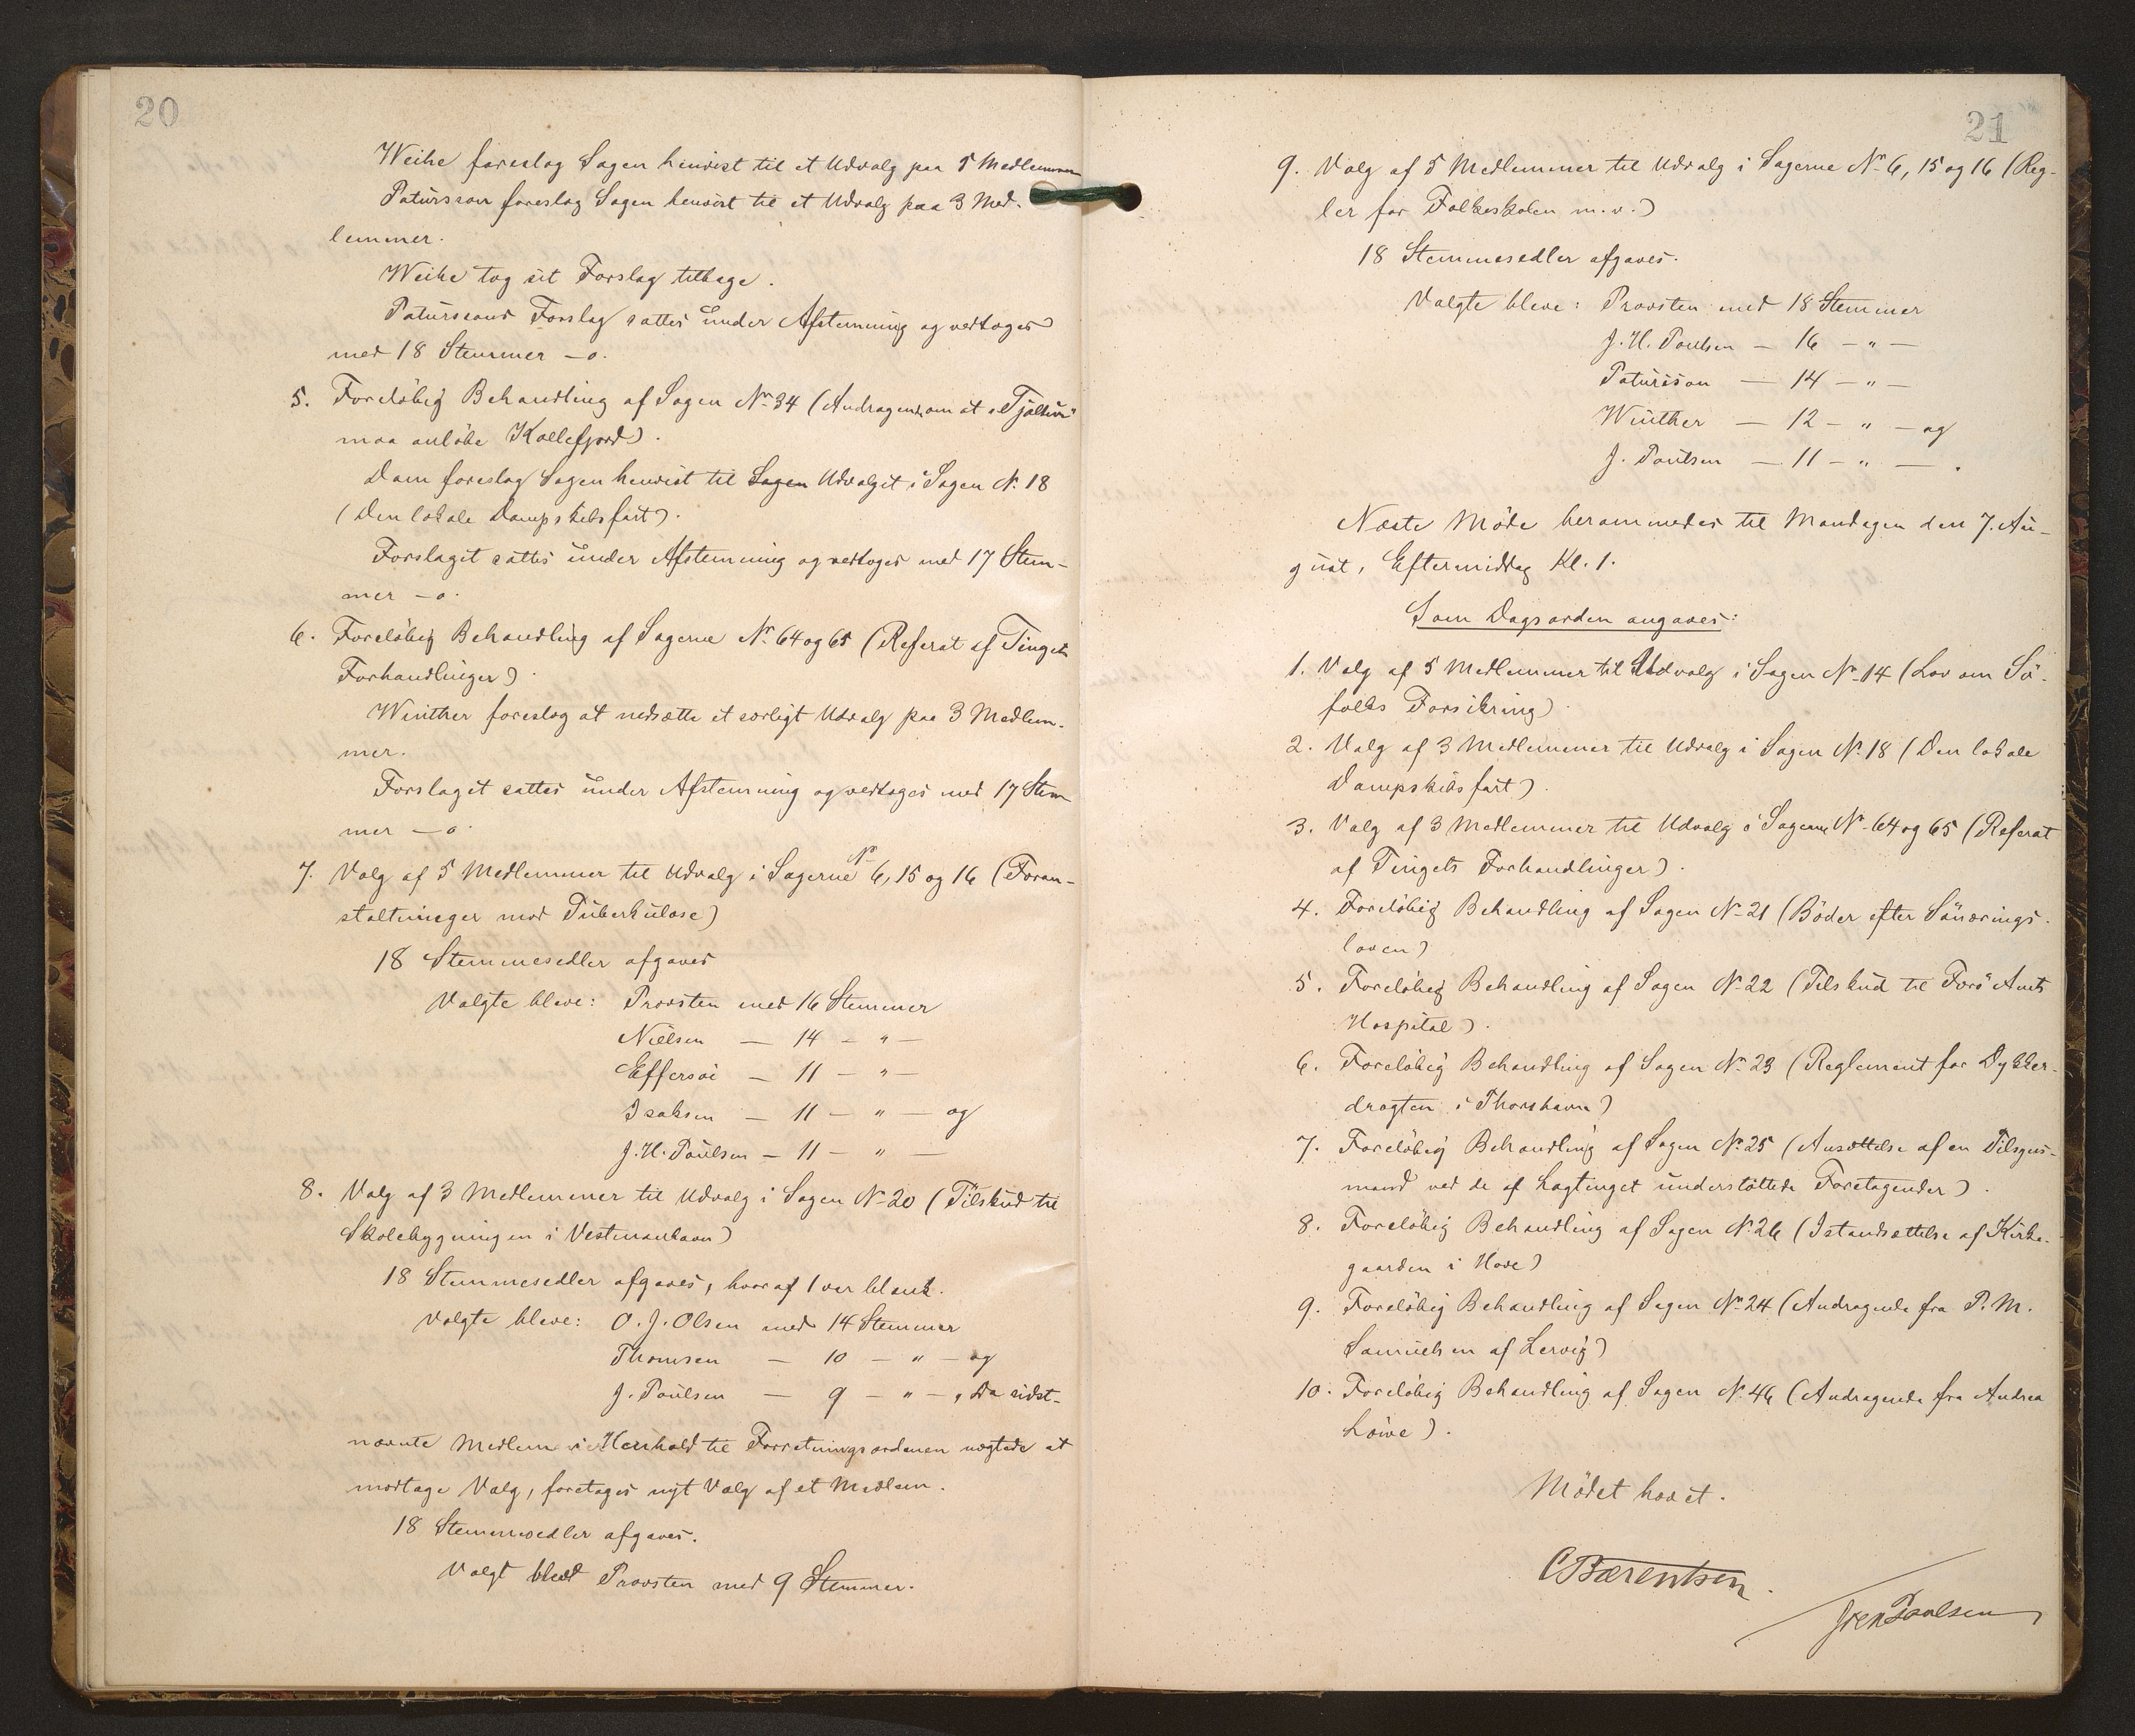 20
Weihe foreslog Sagen henvist til et Udvalg paa 5 Medlemmer
Patursson foreslog Sagen henvist til et Udvalg paa 3 Med-
lemmer.
Weihe tog sit Forslag tilbage.
Paturssons Forslag sattes under Afstemning og vedtoges
med 18 Stemmer – o.
5. Foreløbig Behandling af Sagen No 34 (Andragende om at "Tjaldur"
maa anløbe Kollefjord).
Dam foreslog Sagen henvist til Sagen Udvalget i Sagen No 18
(Den lokale Dampskibsfart).
Forslaget sattes under Afstemning og vedtoges med 17 Stem-
mer – o.
6. Foreløbig Behandling af Sagerne No 64 og 65 (Referat af Tingets
Forhandlinger).
Winther foreslog at nedsætte et særligt Udvalg paa 3 Medlem-
mer.
Forslaget sattes under Afstemning og vedtoges med 17 Stem
mer – o.
7. Valg af 5 Medlemmer til Udvalg i Sagerne No 6, 15 og 16 (Foran-
staltninger mod Tuberkulose)
18 Stemmesedler afgaves
Valgte bleve: Provsten med 16 Stemmer
Nielsen – 14 – " –
Effersøe – 11 – " –
Isaksen – 11 – " – og
J. H. Poulsen – 11 – " –
8. Valg af 3 Medlemmer til Udvalg i Sagen No 20 (Tilskud til
Skolebygningen i Vestmanhavn)
18 Stemmesedler afgaves, hvoraf 1 var blank.
Valgte bleve: O. J. Olsen med 14 Stemmer
Thomsen – 10 – " – og
J. Poulsen – 9 – " –, Da sidst-
nævnte Medlem i Henhold til Forretningsordenen nægtede at
modtage Valg, foretoges nyt Valg af et Medlem.
18 Stemmesedler afgaves.
Valgt blev Provsten med 9 Stemmer.
21
9. Valg af 5 Medlemmer til Udvalg i Sagerne No 6, 15 og 16 (Reg-
ler for Folkeskolen m.v.)
18 Stemmesedler afgaves.
Valgte bleve: Provsten med 18 Stemmer
J. H. Poulsen – 16 – " –
Patursson – 14 – " –
Winther – 12 – " – og
J. Poulsen – 11 – " – .
Næste Møde berammedes til Mandagen den 7. Au-
gust, Eftermiddag Kl. 1.
Som Dagsorden angaves:
1. Valg af 5 Medlemmer til Udvalg i Sagen No 14 (Lov om Sø-
folks Forsikring).
2. Valg af 3 Medlemmer til Udvalg i Sagen No 18 (Den lokale
Dampskibsfart).
3. Valg af 3 Medlemmer til Udvalg i Sagerne No 64 og 65 (Referat
af Tingets Forhandlinger).
4. Foreløbig Behandling af Sagen No 21 (Bøder efter Sønærings-
loven)
5. Foreløbig Behandling af Sagen No 22 (Tilskud til Færø Amts
Hospital).
6. Foreløbig Behandling af Sagen No 23 (Reglement for Dykker-
dragten i Thorshavn)
7. Foreløbig Behandling af Sagen No 25 (Ansættelse af en Tilsyns-
mand ved de af Lagtinget understøttede Foretagender).
8. Foreløbig Behandling af Sagen No 26 (Istandsættelse af Kirke-
gaarden i Hove)
9. Foreløbig Behandling af Sagen No 24 (Andragende fra P. M.
Samuelsen af Lervig)
10. Foreløbig Behandling af Sagen No 46 (Andragende fra Andrea
Løwe).
Mødet hævet.
CBærentsen.
Poulsen